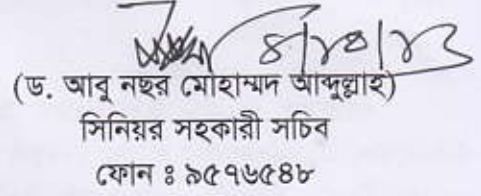 (ড. আবু নছর মোহাম্মদ আব্দুল্লাহ)
সিনিয়র সহকারী সচিব
ফোন ঃ ৯৫৭৬৫৪৮